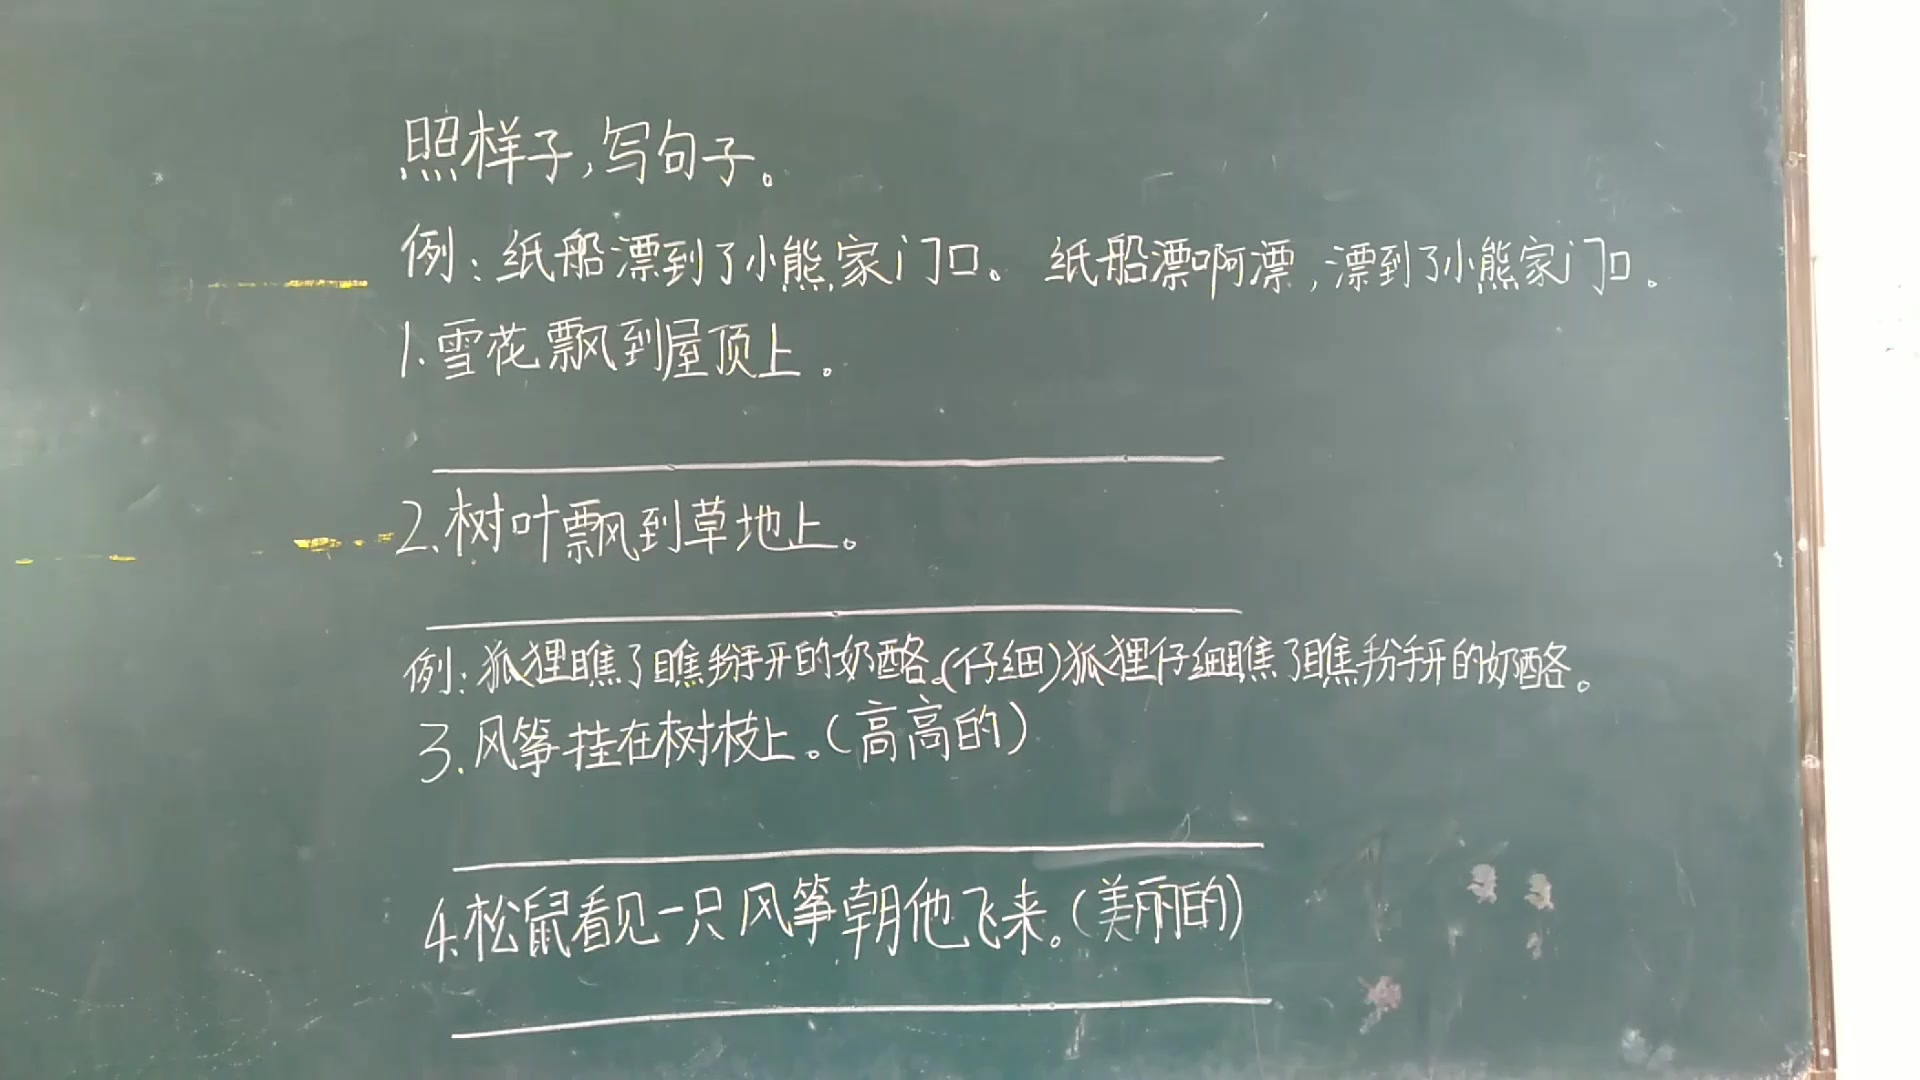 照样子,写句子。
例:纸船漂到了小熊家门口。 纸船漂啊漂,漂到了小熊家门口。
1.雪花飘到屋顶上。
2.树叶飘到草地上。
例:狐狸瞧了瞧掰开的奶酪。(仔细)狐狸仔细瞧了瞧掰开的奶酪。
3.风筝挂在树枝上。(高高的)
4.松鼠看见一只风筝朝他飞来。(美丽的)